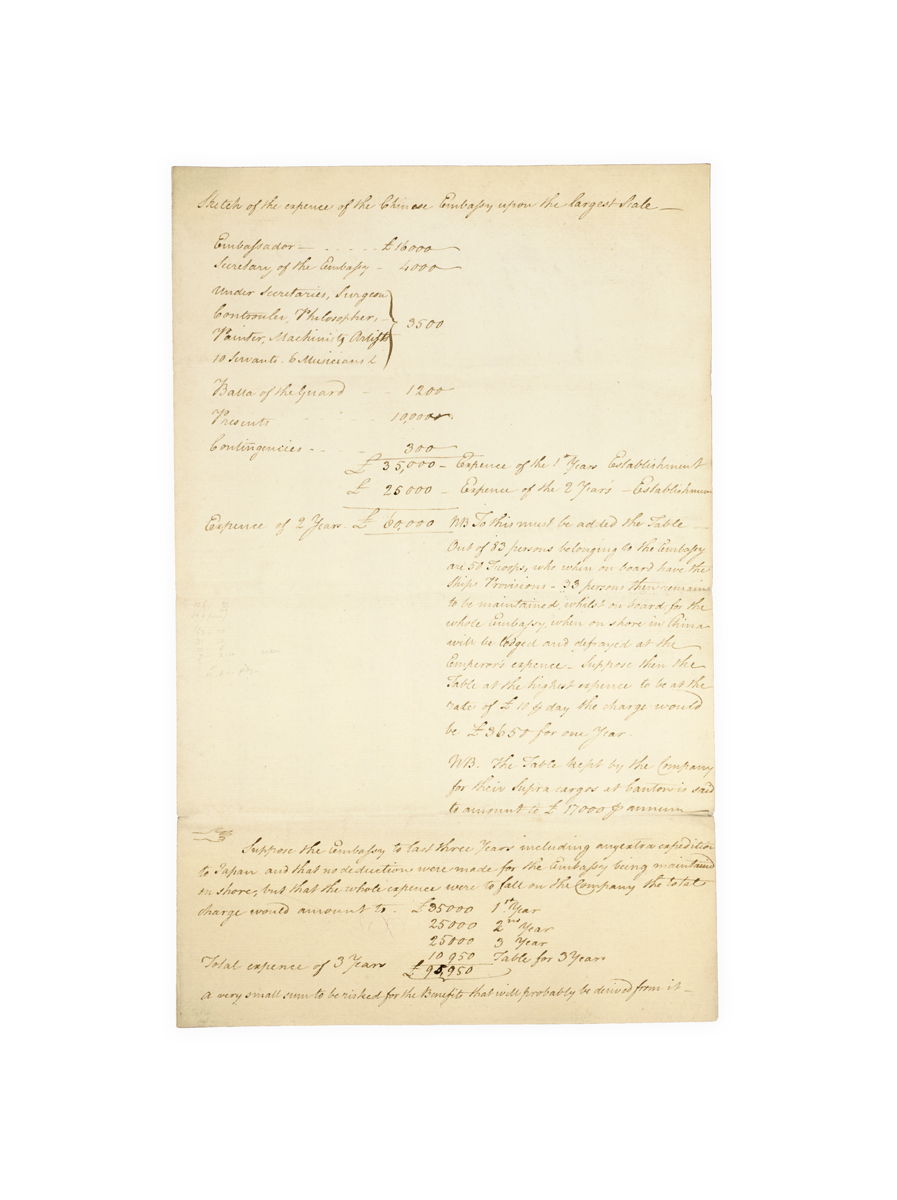 Sketch of the expence of the Chinese Embassy upon the largest Scale —
Embassador — . . . . . £16000
Secretary of the Embassy – 4000
Under Secretaries, Surgeon
Controuler, Philosopher, 3500
Painter, Machinist, Artists
10 Servants. 6 Musicians &
Batta of the Guard – – 1200
Presents . . . . 10,000
Contingencies – . . . . 300
£ 35,000 – Expence of the 1st Years Establishment
£ 25000 – Expence of the 2 Years – Establishment
Expence of 2 Years. £ 60,000 NB To this must be added the Table —
Out of 83 persons belonging to the Embassy
are 50 Troops, who when on board have the
Ships Provisions – 33 persons then remain
to be maintained whilst on board, for the
whole Embassy, when on shore in China
will be lodged and defrayed at the
Emperor's expence – Suppose then the
Table at the highest expence to be at the
rate of £10 ⅌ day the charge would
be £3650 for one Year.
NB. The Table kept by the Company
for their Supra cargos at Canton is said
to amount to £ 17000 ⅌ annum —
Suppose the Embassy to last three Years including any extra expedition
to Japan and that no deductions were made for the Embassy being maintained
on shore, but that the whole expence were to fall on the Company the total
charge would amount to. £35000 1st Year
25000 2nd Year
25000 3 Year
10950 Table for 3 Years
Total expence of 3 Years £95,950
a very small sum to be risked for the Benefits that will probably be derived from it –